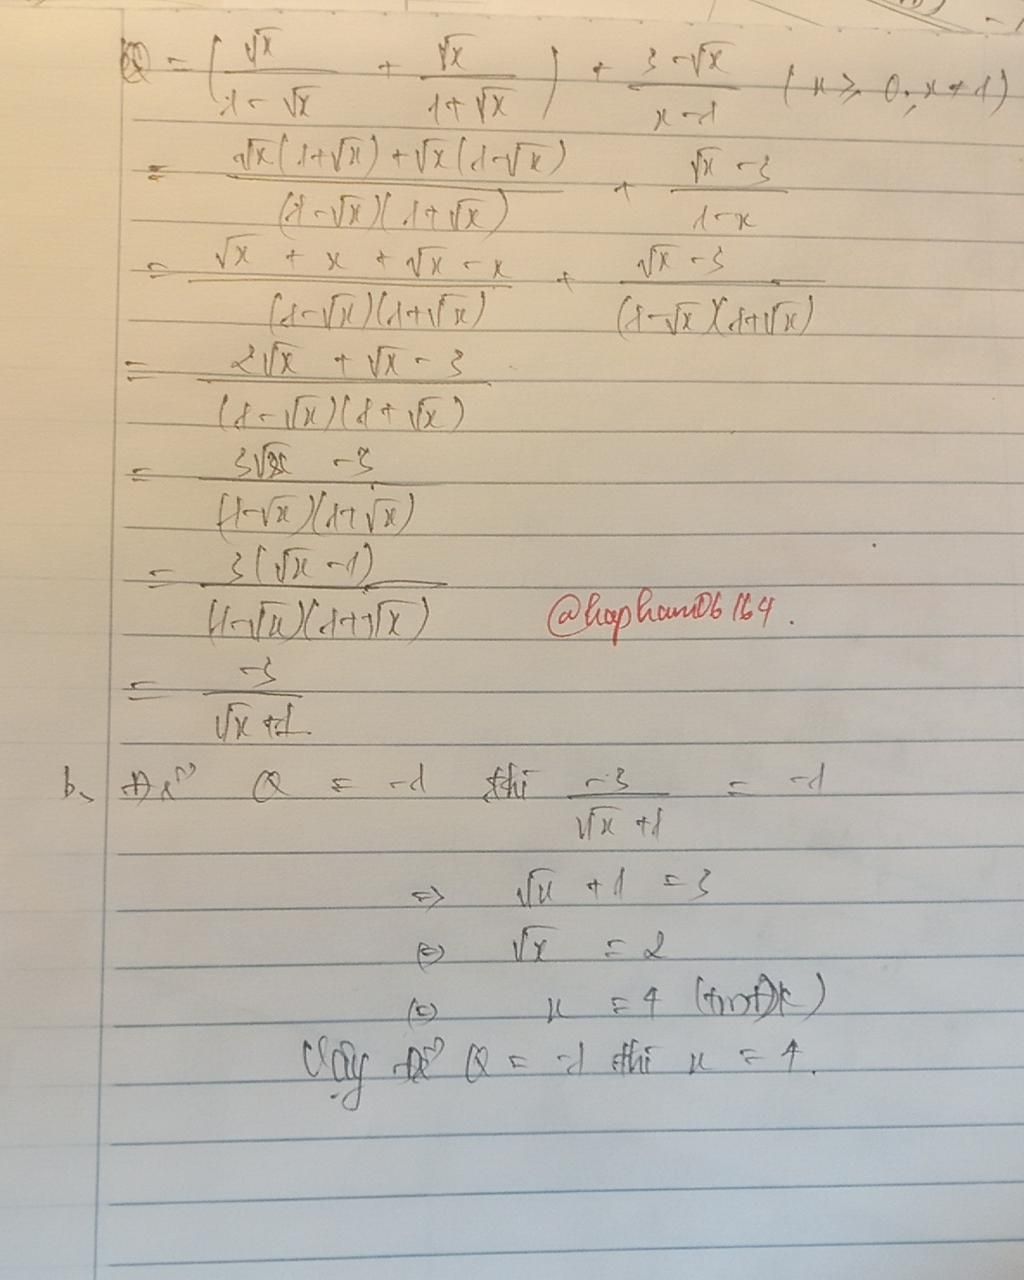 Q = (√x/(1-√x) + √x/(1+√x)) + (3-√x)/(x-1) (x ≥ 0; x ≠ 1)
= (√x(1+√x) + √x(1-√x))/((1-√x)(1+√x)) + (√x-3)/(1-x)
= (√x + x + √x - x)/((1-√x)(1+√x)) + (√x-3)/((1-√x)(1+√x))
= (2√x + √x - 3)/((1-√x)(1+√x))
= (3√x - 3)/((1-√x)(1+√x))
= 3(√x-1)/((1-√x)(1+√x))
@hapham06164.
= -3/(√x+1)
b. Để Q = -1 thì -3/(√x+1) = -1
=> √x + 1 = 3
(=) √x = 2
(=) x = 4 (tmđk)
Vậy để Q = -1 thì x = 4.